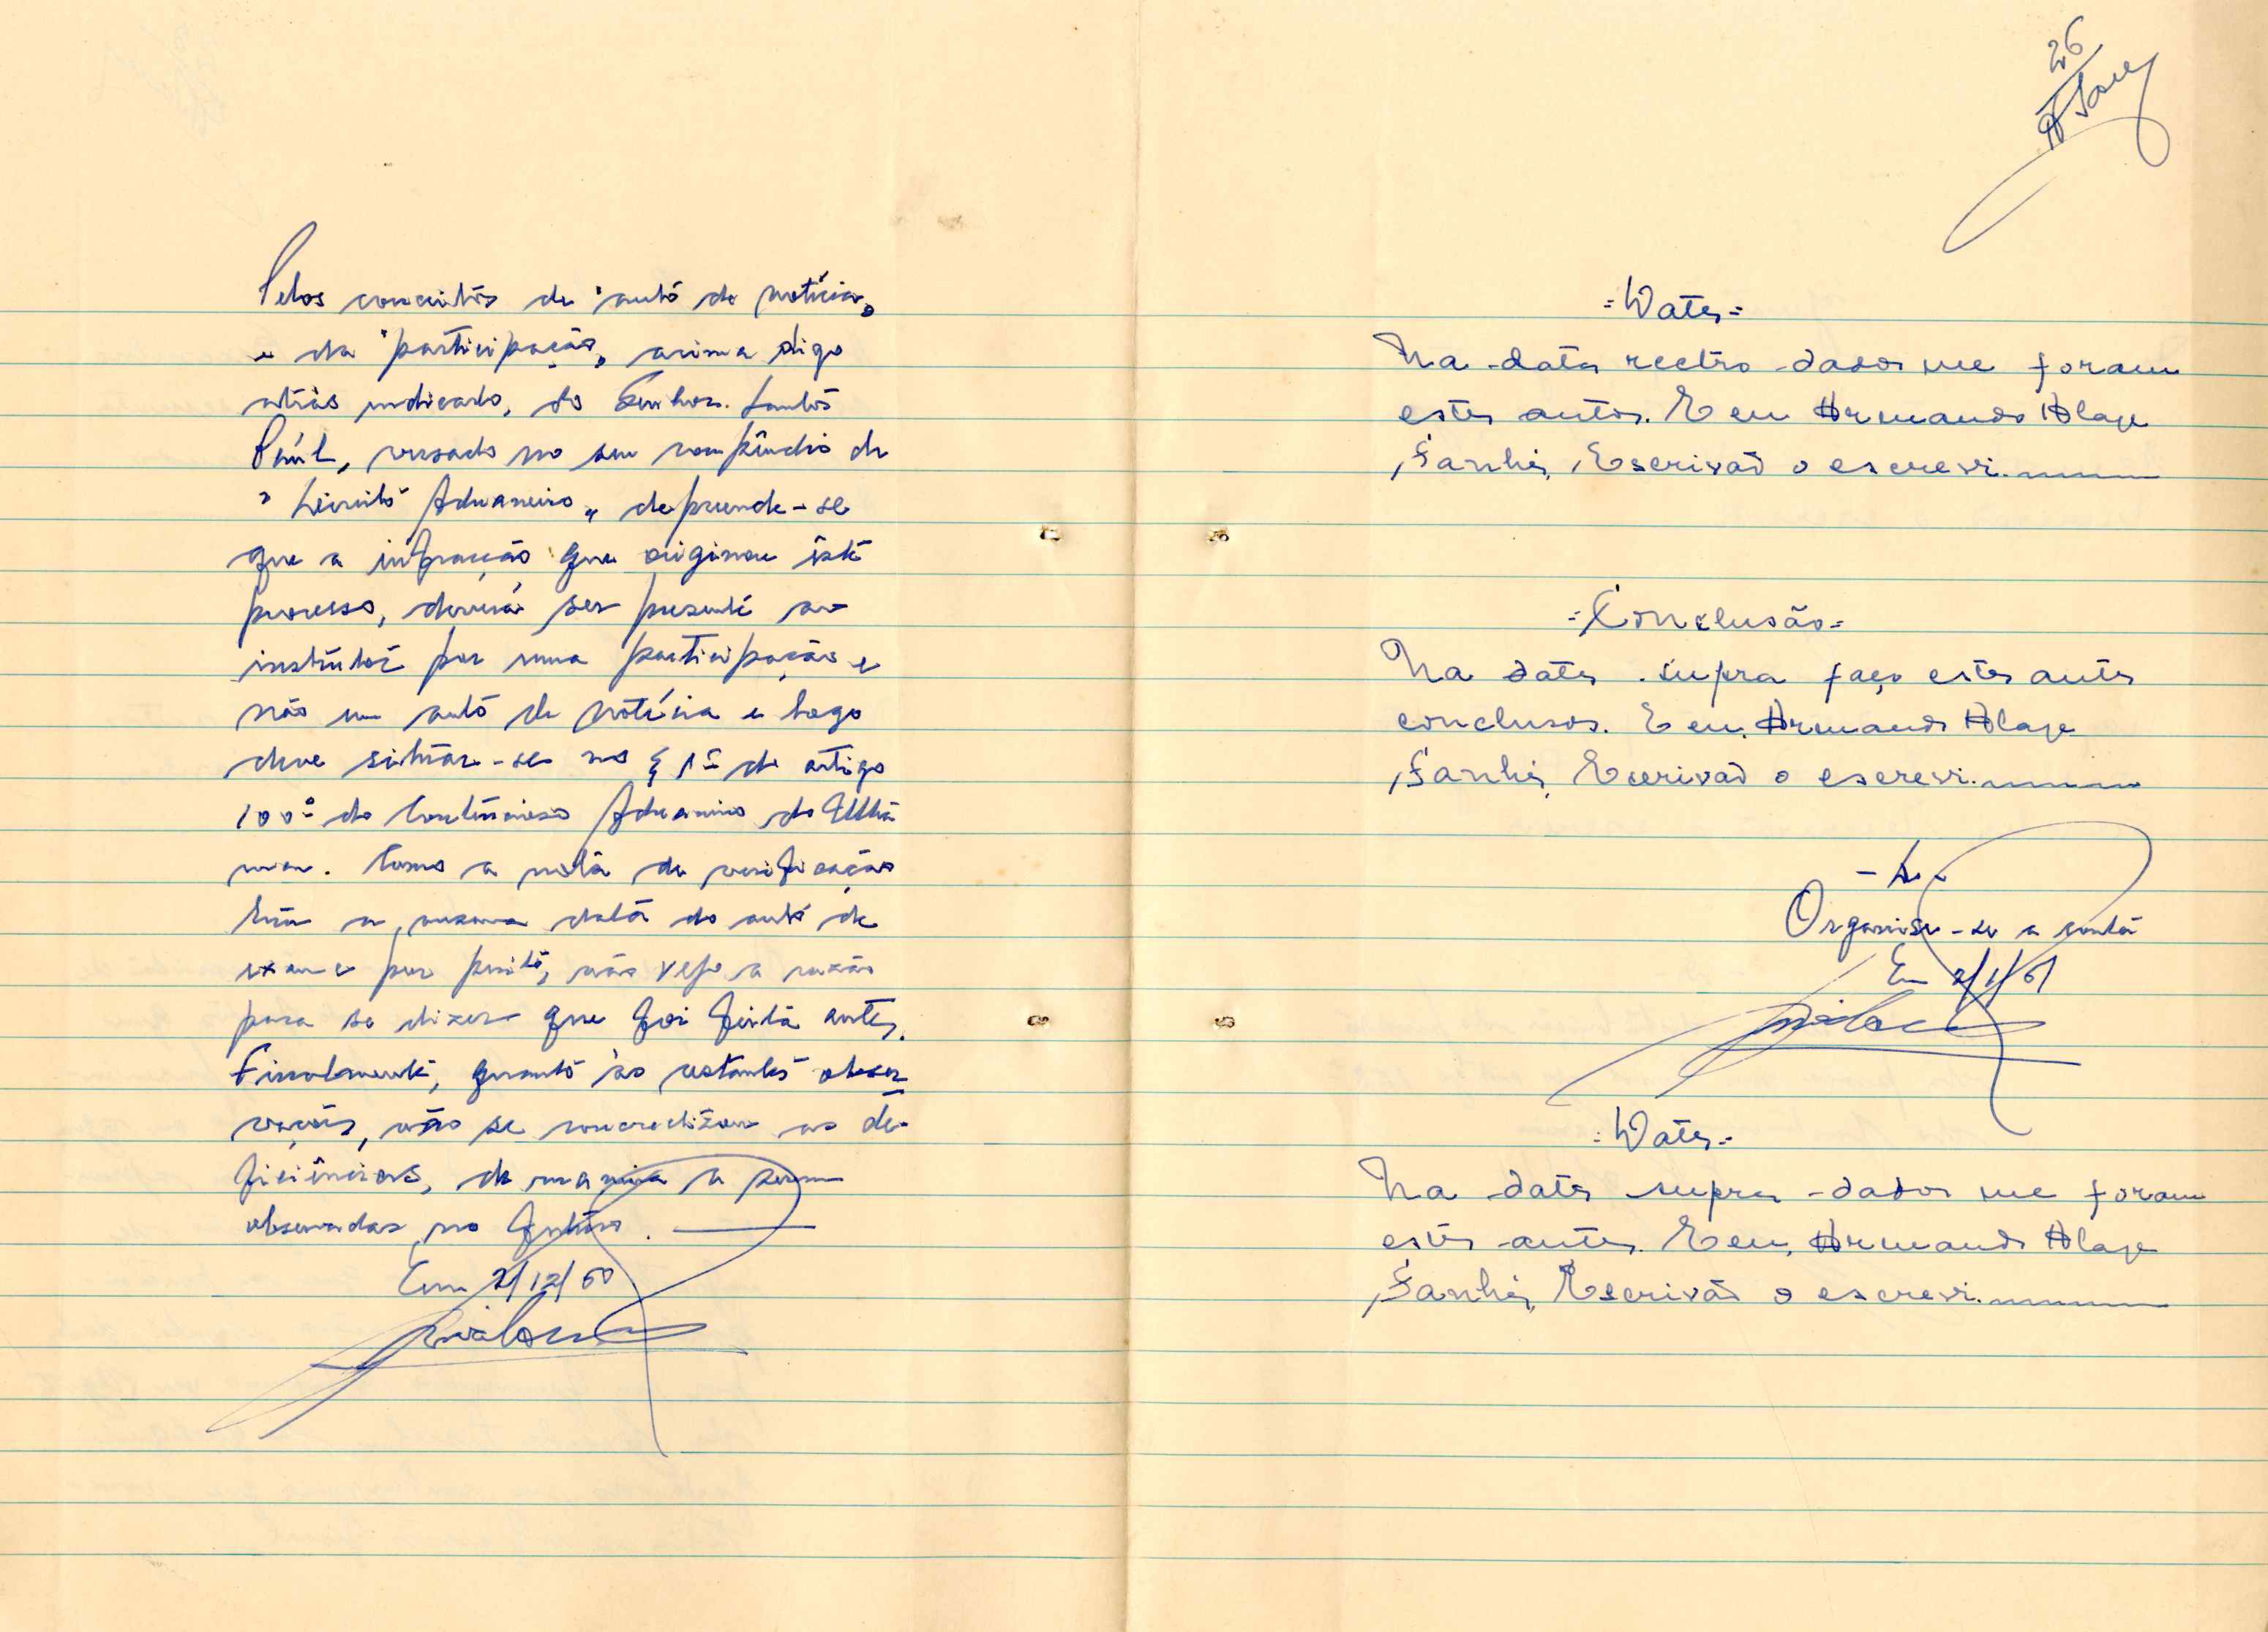 Pelos conceitos de "auto de notícia„
e da "participação„ acima digo
atrás indicado, do Senhor Santos
Paúl, versado no seu compêndio de
"Direito Aduaneiro„ depreende-se
que a infracção que originou êste
processo, deverá ser presente ao
instrutor por uma participação e
não um auto de notícia e logo
deve situar-se no § 1º do artigo
100º do Contencioso Aduaneiro do Ultra
mar. Como a nota de verificação
tem a mesma data do auto de
exame por perito, não vejo a razão
para se dizer que foi feita antes.
Finalmente, quanto às restantes obser
vações, não se concretizam as de-
ficiências, de maneira a serem
observadas no futuro.
Em 2/12/60
26
=Data=
Na data rectro dados me foram
estes autos. E eu Armando Alage
Sanhá, Escrivão o escrevi.
=Conclusão=
Na data supra faço estes autos
conclusos. E eu, Armando Alage
Sanhá, Escrivão o escrevi.
Organise-se a conta
Em 2/1/61
=Data=
Na data supra dados me foram
estes autos. E eu, Armando Alage
Sanhá, Escrivão o escrevi.